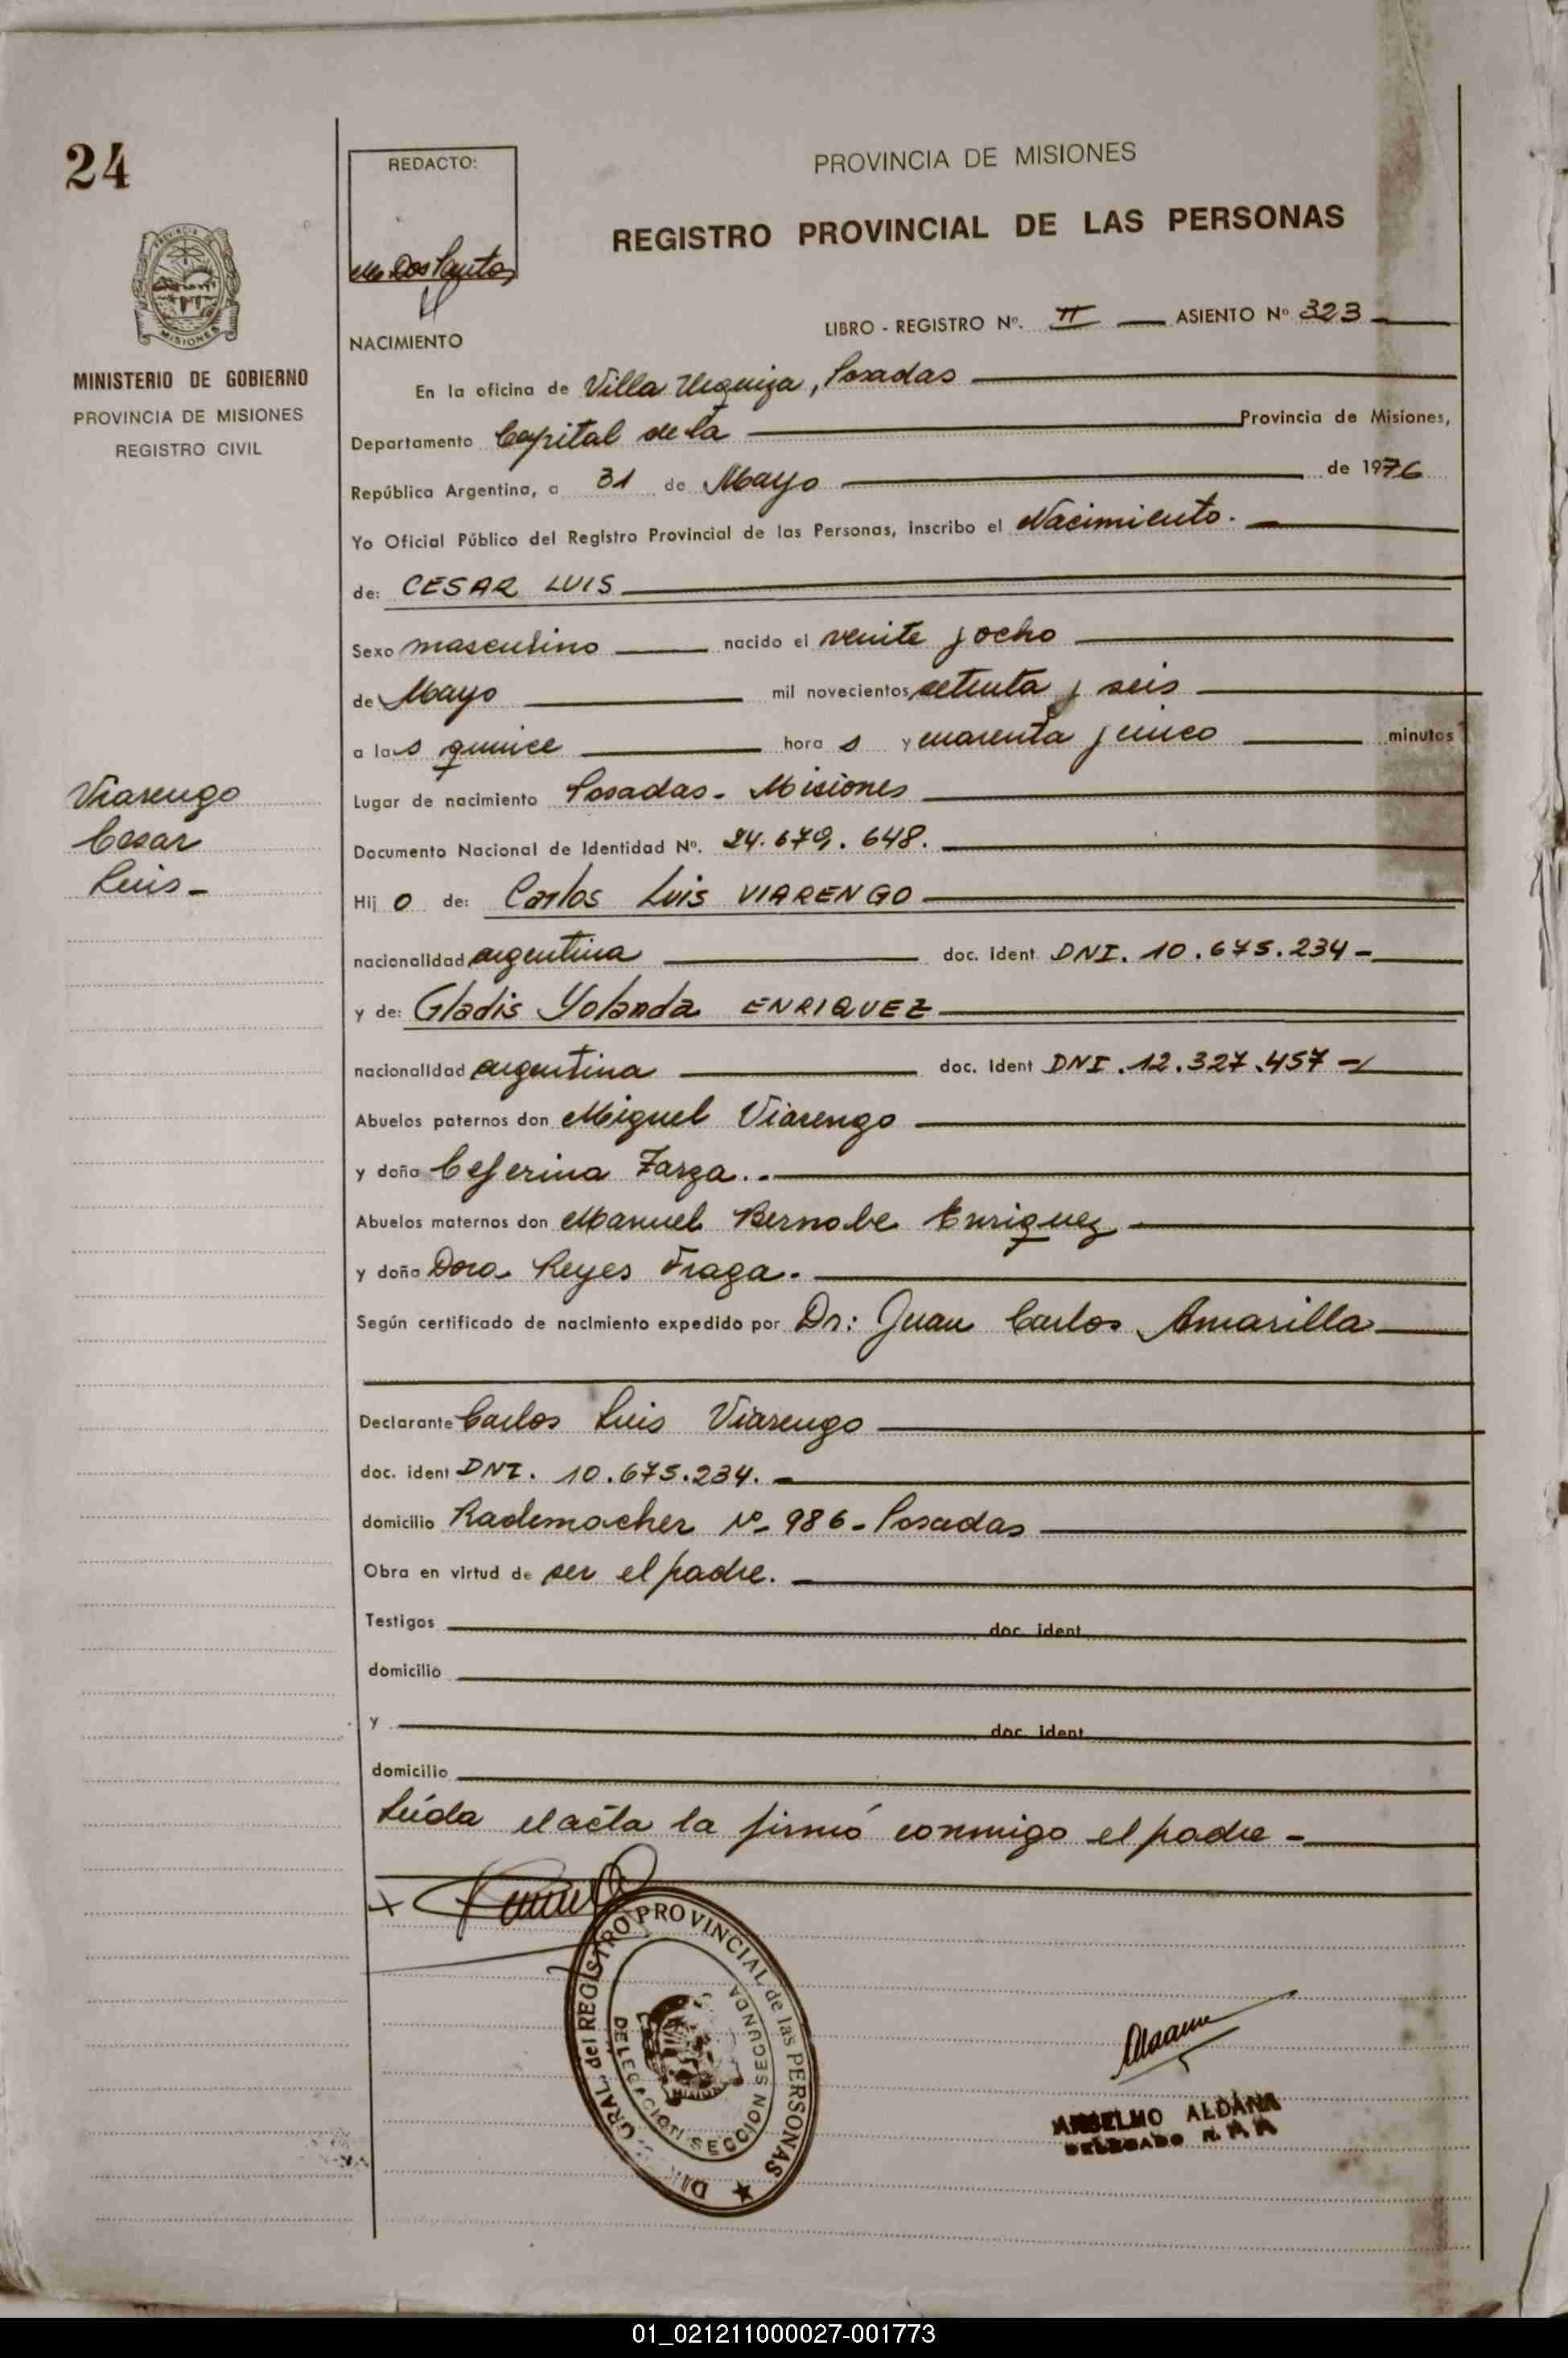 24
REDACTO:
PROVINCIA DE MISIONES
REGISTRO PROVINCIAL DE LAS PERSONAS
Dos Santos
PROVINCIA DE
MISIONES
MINISTERIO DE GOBIERNO
PROVINCIA DE MISIONES
REGISTRO CIVIL
LIBRO - REGISTRO Nº. II ASIENTO Nº 323
NACIMIENTO
En la oficina de Villa Urquiza, Posadas
Departamento Capital de la Provincia de Misiones,
República Argentina, a 31 de Mayo de 1976
Yo Oficial Público del Registro Provincial de las Personas, inscribo el Nacimiento.
de: CESAR LUIS
Sexo masculino nacido el veinte y ocho
de Mayo mil novecientos setenta y seis
a las quince horas y cuarenta y cinco minutos
Viarengo
Cesar
Luis -
Lugar de nacimiento Posadas - Misiones
Documento Nacional de Identidad Nº. 24.679.648.
Hijo de: Carlos Luis VIARENGO
nacionalidad argentina doc. ident. DNI. 10.675.234 -
y de: Gladis Yolanda ENRIQUEZ
nacionalidad argentina doc. ident DNI. 12.327.457 -
Abuelos paternos don Miguel Viarengo
y doña Ceferina Zarza. -
Abuelos maternos don Manuel Bernabe Enriquez
y doña Dora Reyes Fraga.
Según certificado de nacimiento expedido por Dr: Juan Carlos Amarilla
Declarante Carlos Luis Viarengo
doc. ident DNI. 10.675.234. -
domicilio Rademacher Nº 986 - Posadas
Obra en virtud de ser el padre.
Testigos doc. ident
domicilio
y doc. ident
domicilio
Leída el acta la firmó conmigo el padre -
DIR. GRAL. del REGISTRO PROVINCIAL de las PERSONAS
DELEGACION SECCION SEGUNDA
ANSELMO ALDANA
DELEGADO R. P. P.
01_021211000027-001773